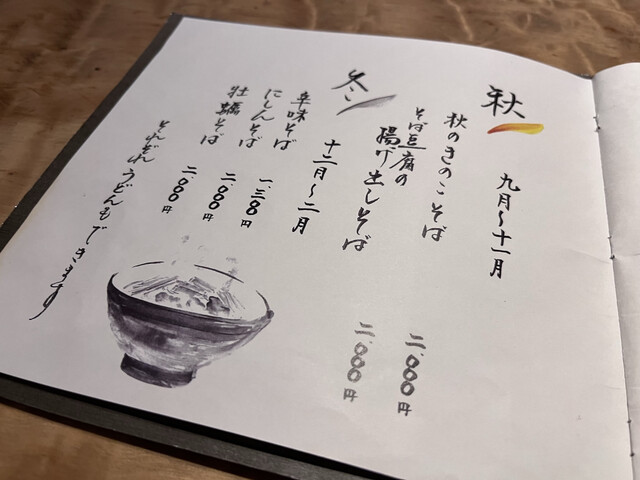 秋
九月〜十一月
秋のきのこそば
二、〇〇〇円
そば豆腐の
揚げ出しそば
二、〇〇〇円
冬
十二月〜二月
辛味そば
一、三〇〇円
にしんそば
二、〇〇〇円
牡蠣そば
二、〇〇〇円
それぞれうどんもできます